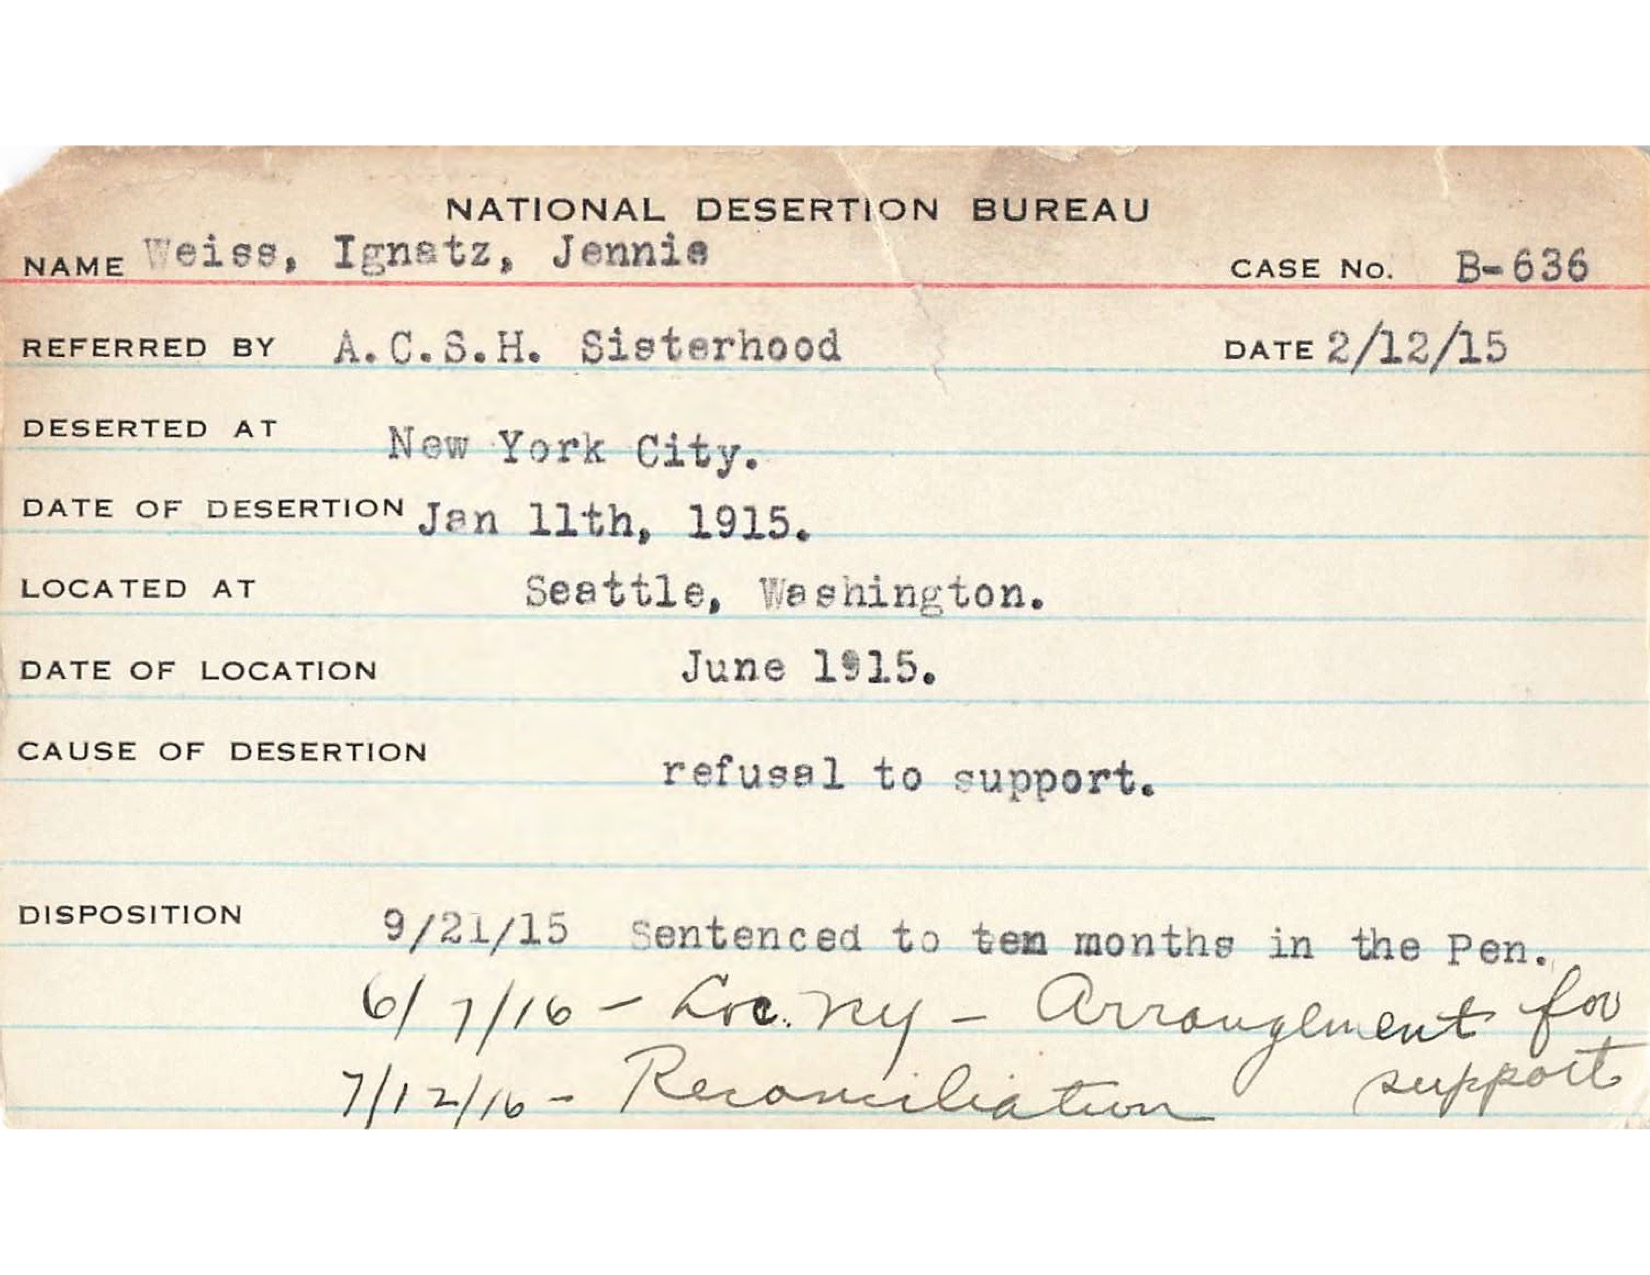 NATIONAL DESERTION BUREAU
NAME Weiss, Ignatz, Jennie CASE No. B-636
REFERRED BY A.C.S.H. Sisterhood DATE 2/12/15
DESERTED AT New York City.
DATE OF DESERTION Jan 11th, 1915.
LOCATED AT Seattle, Washington.
DATE OF LOCATION June 1915.
CAUSE OF DESERTION refusal to support.
DISPOSITION 9/21/15 Sentenced to ten months in the Pen.
6/7/16 - Loc. NY - Arrangement for
support
7/12/16 - Reconciliation